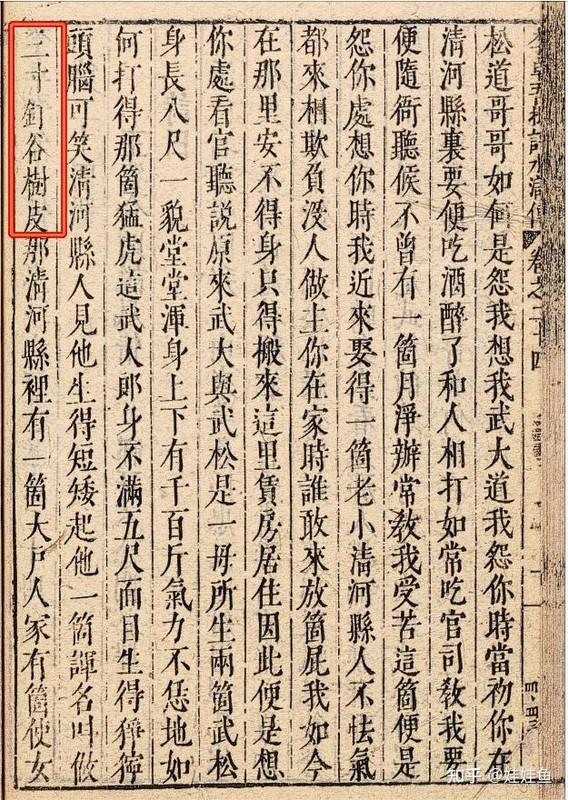 李卓吾批評水滸傳 卷之二十四
松道哥哥如何是怨我想我武大道我怨你時當初你在
清河縣裏要便吃酒醉了和人相打如常吃官司敎我要
便隨衙聽候不曾有一箇月淨辦常敎我受苦這箇便是
怨你處想你時我近來娶得一箇老小清河縣人不怯氣
都來相欺負没人做主你在家時誰敢來放箇屁我如今
在那里安不得身只得搬來這里賃房居住因此便是想
你處看官聽説原來武大與武松是一母所生兩箇武松
身長八尺一貌堂堂渾身上下有千百斤氣力不恁地如
何打得那箇猛虎這武大郎身不滿五尺面目生得猙獰
頭腦可笑清河縣人見他生得短矮起他一箇諢名叫做
三寸釘谷樹皮那清河縣裡有一箇大戶人家有箇使女
知乎 @娃娃鱼